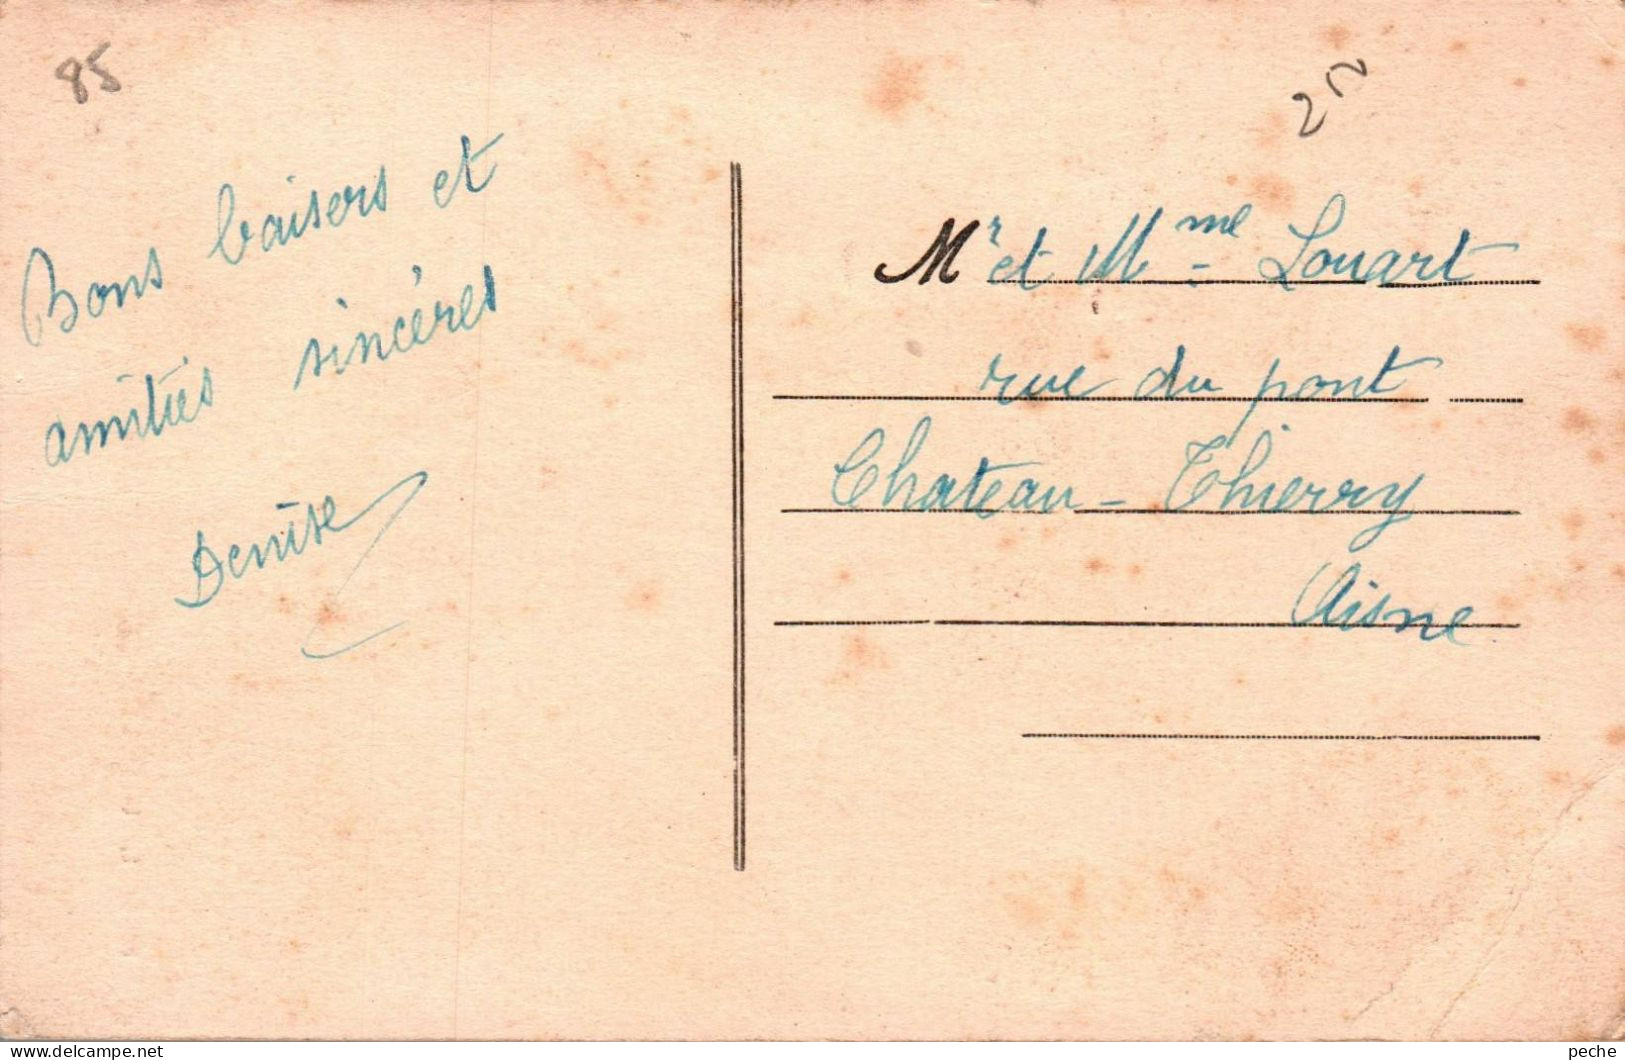 85
Bons baisers et
amitiés sincères
Denise
Mr et Mme - Louart
rue du pont
Chateau - Thierry
Aisne
delcampe.net
peche